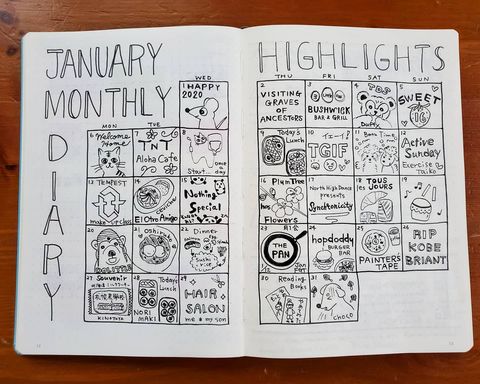 JANUARY
MONTHLY
DIARY
HIGHLIGHTS
WED
1 HAPPY
2020
THU
FRI
SAT
SUN
2
VISITING
GRAVES
OF
ANCESTORS
3
BUSHWICK
BAR & GRILL
4
TDS
Duffy
5
SWEET
16
MON
TUE
6 Welcome
Home
7
TNT
Aloha Cafe
8
Once a
day
Start...
9 Today's
Lunch
10
TGIF
11
12
Active
Sunday
Exercise
Taiko
13 TEMPEST
make-up class
14
El Otro Amigo
15
Nothing
Special
16 PlumTree
Flowers
17
North High Dance
presents
Synchronicity
18 TOUS
les
JOURS
19
20
21 Oshinko
22 Dinner
Sushi
rice
23
THE
PAN
24
hopdoddy
BURGER
BAR
25
PAINTER'S
TAPE
26
RIP
KOBE
BRIANT
27 Souvenir
KINOTOYA
28 Today's
Lunch
NORI
MAKI
29
HAIR
SALON
me & my son
30 Reading
Books
31
CHOCO